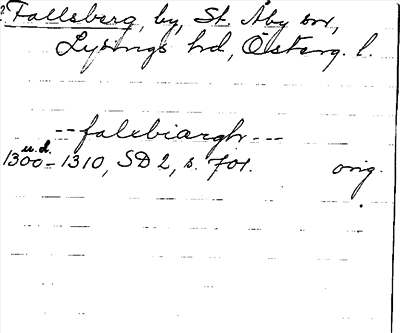 Fallsberg, by, St. Åby sn,
Lysings hd, Österg. l.
-- falebiargh ---
u.d.
1300-1310, SD 2, s. 701. orig.